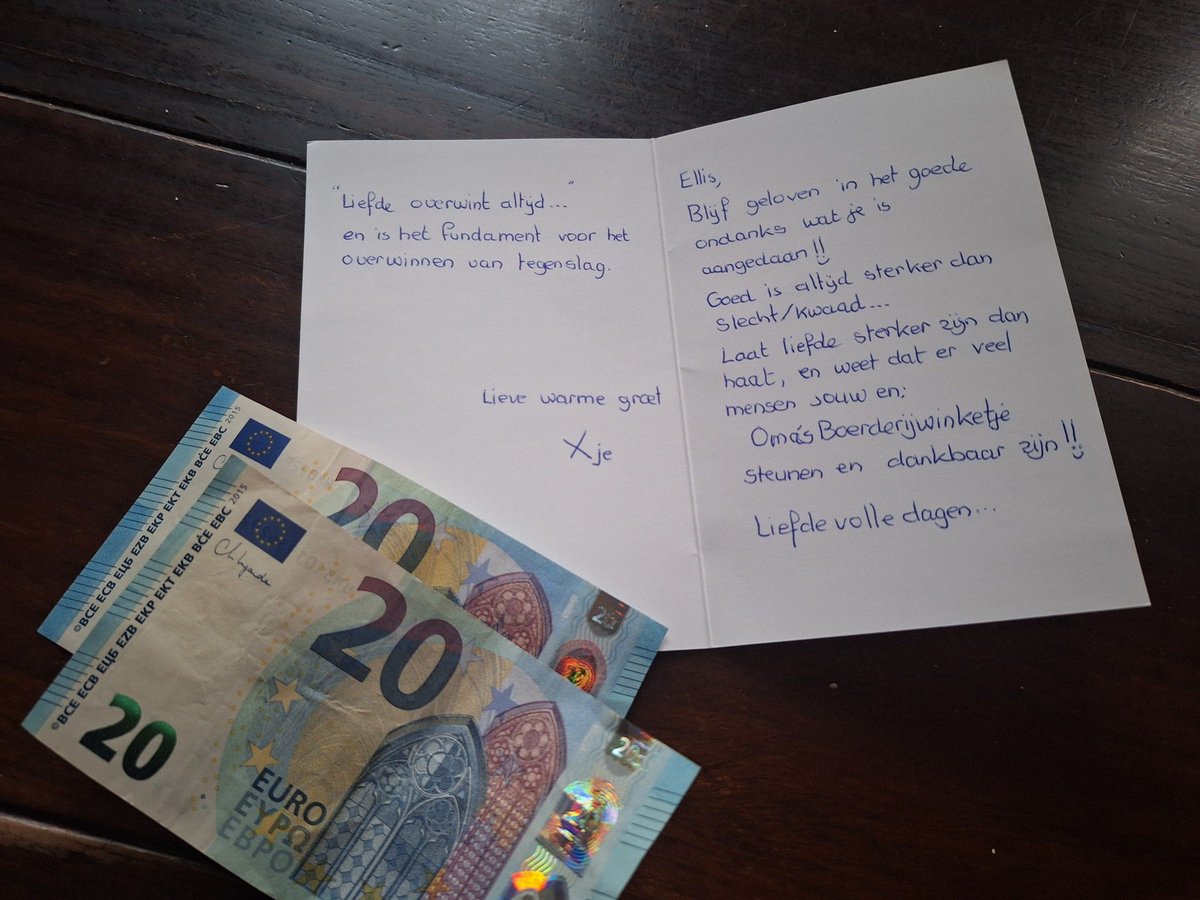 "Liefde overwint altijd..."
en is het fundament voor het
overwinnen van tegenslag.
Lieve warme groet
Xje
Ellis,
Blijf geloven in het goede
ondanks wat je is
aangedaan!!
Goed is altijd sterker dan
slecht/kwaad...
Laat liefde sterker zijn dan
haat, en weet dat er veel
mensen jouw en:
Oma's Boerderijwinketje
steunen en dankbaar zijn!!
Liefde volle dagen...
©BCE ECB ЕЦБ EZB EKP EKT EKB BĊE EBC 2015
20
20
©BCE ECB ЕЦБ EZB EKP EKT EKB BĊE EBC 2015
20
20
20
EURO
ΕΥΡΩ
ЕВРО